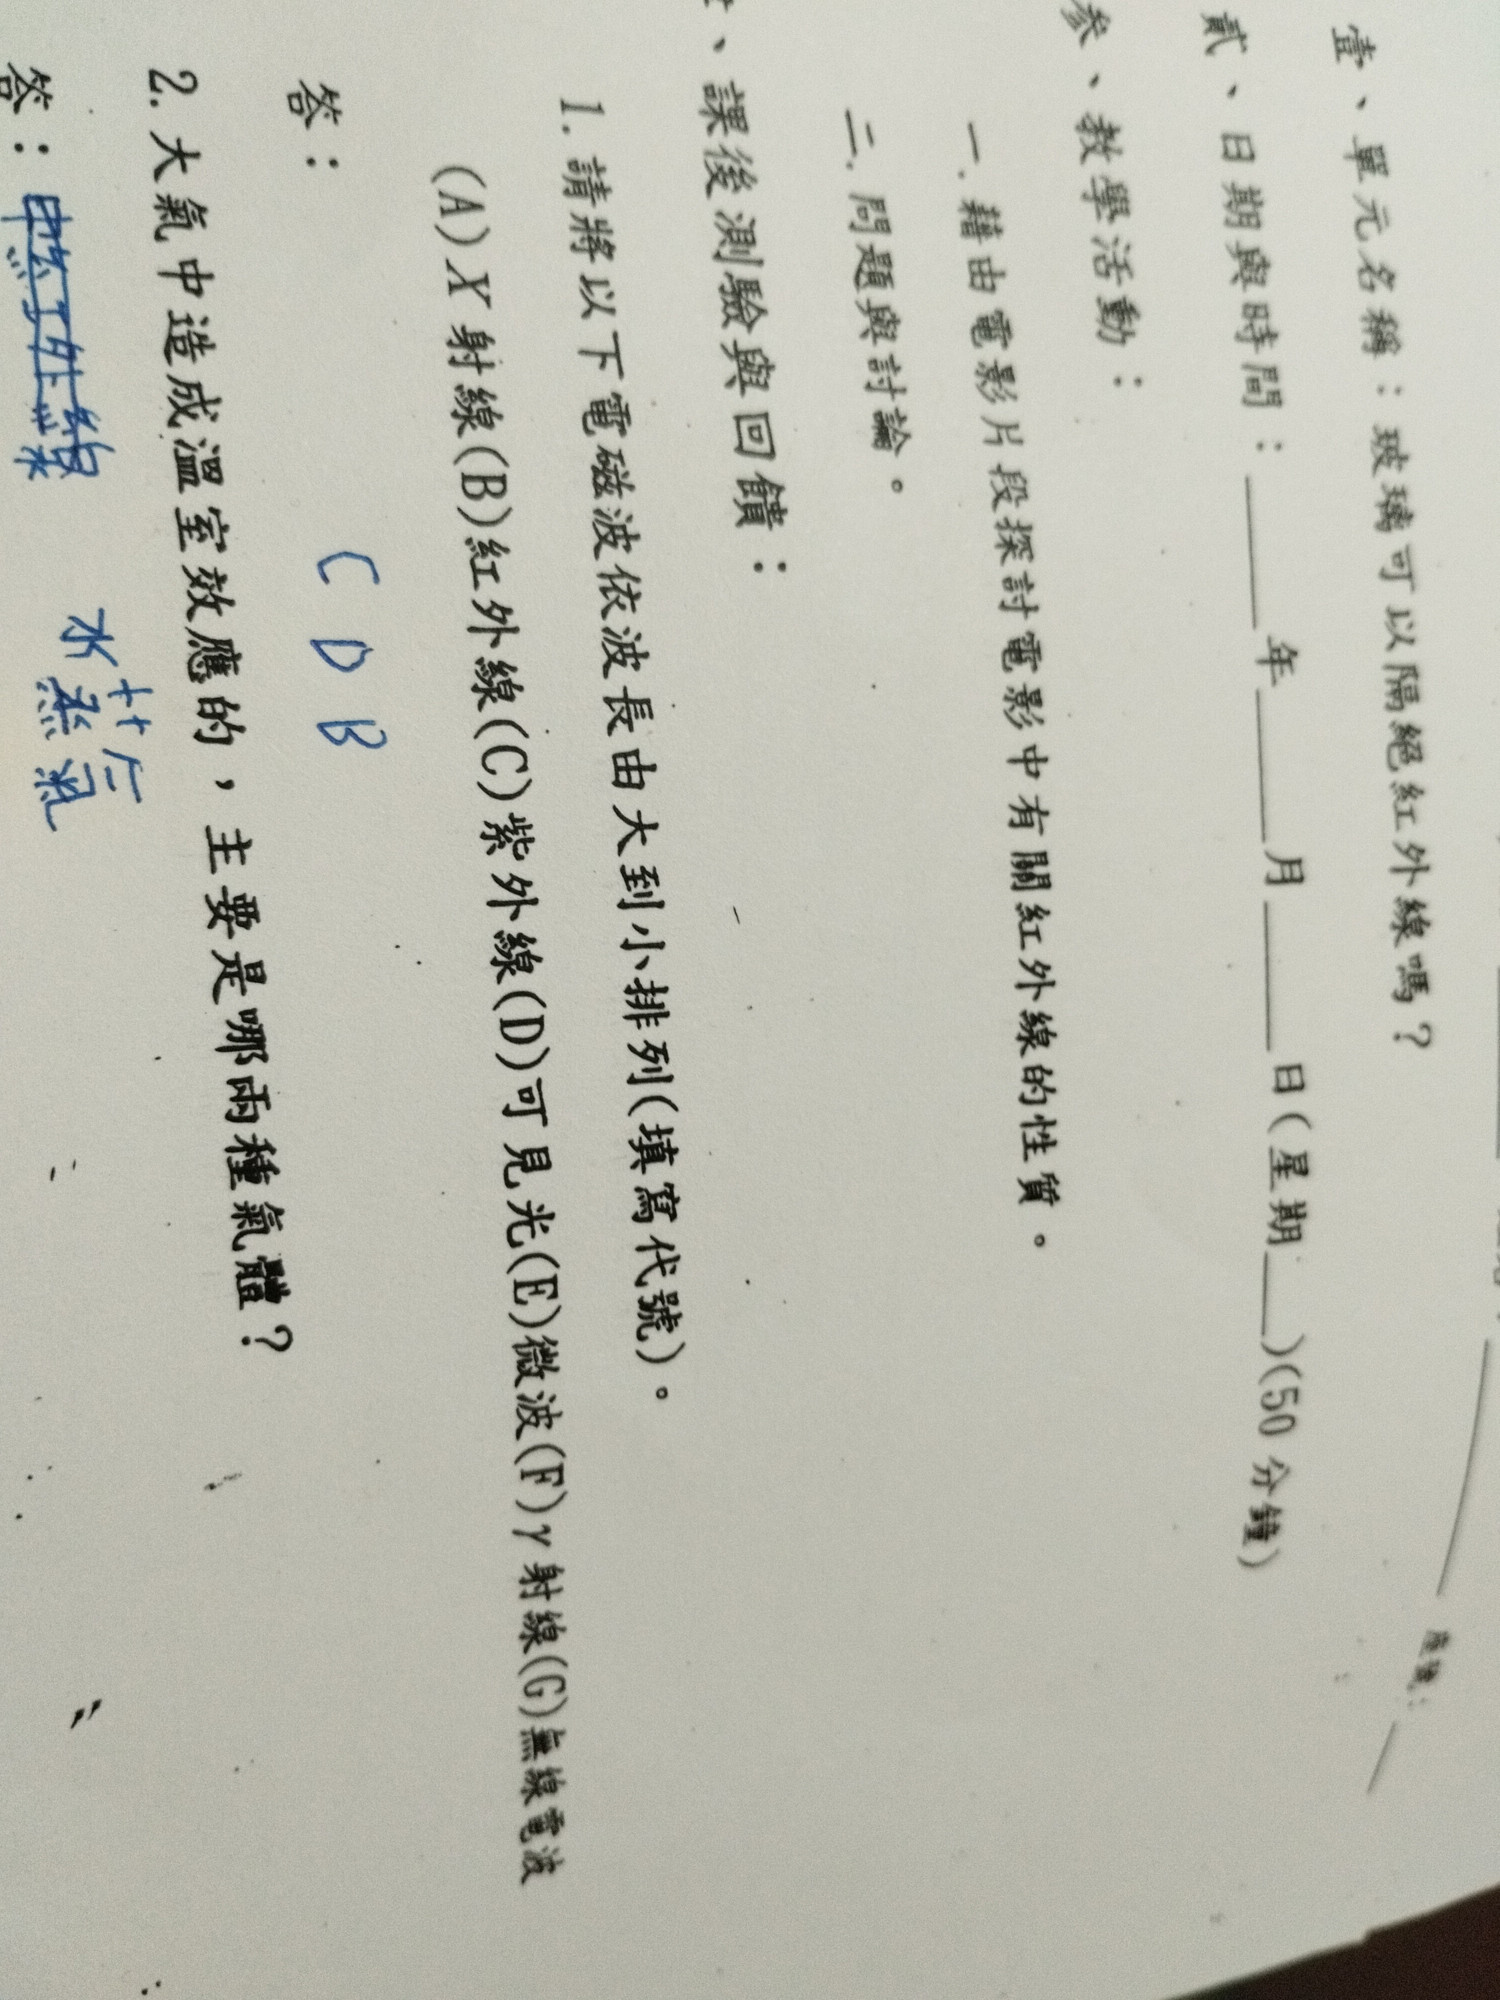 座號：
壹、單元名稱：玻璃可以隔絕紅外線嗎？
貳、日期與時間：____年____月____日(星期__)(50分鐘)
參、教學活動：
一.藉由電影片段探討電影中有關紅外線的性質。
二.問題與討論。
、課後測驗與回饋：
1.請將以下電磁波依波長由大到小排列(填寫代號)。
(A)X射線(B)紅外線(C)紫外線(D)可見光(E)微波(F)γ射線(G)無線電波
答：
C D B
2.大氣中造成溫室效應的，主要是哪兩種氣體？
答： 水蒸氣